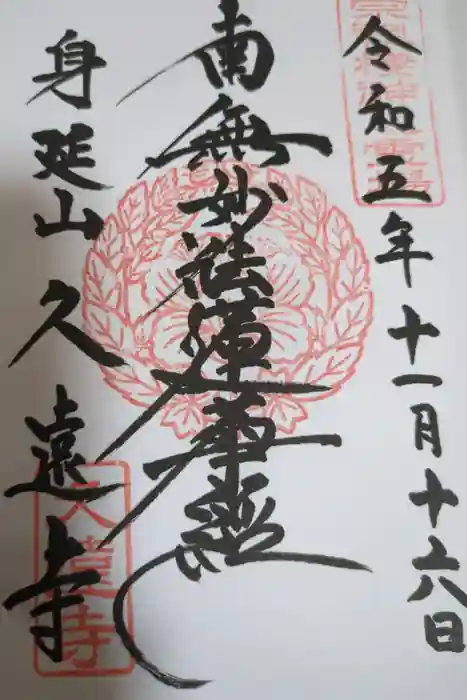 令和五年十一月十六日
南無妙法蓮華経
身延山久遠寺
久遠寺